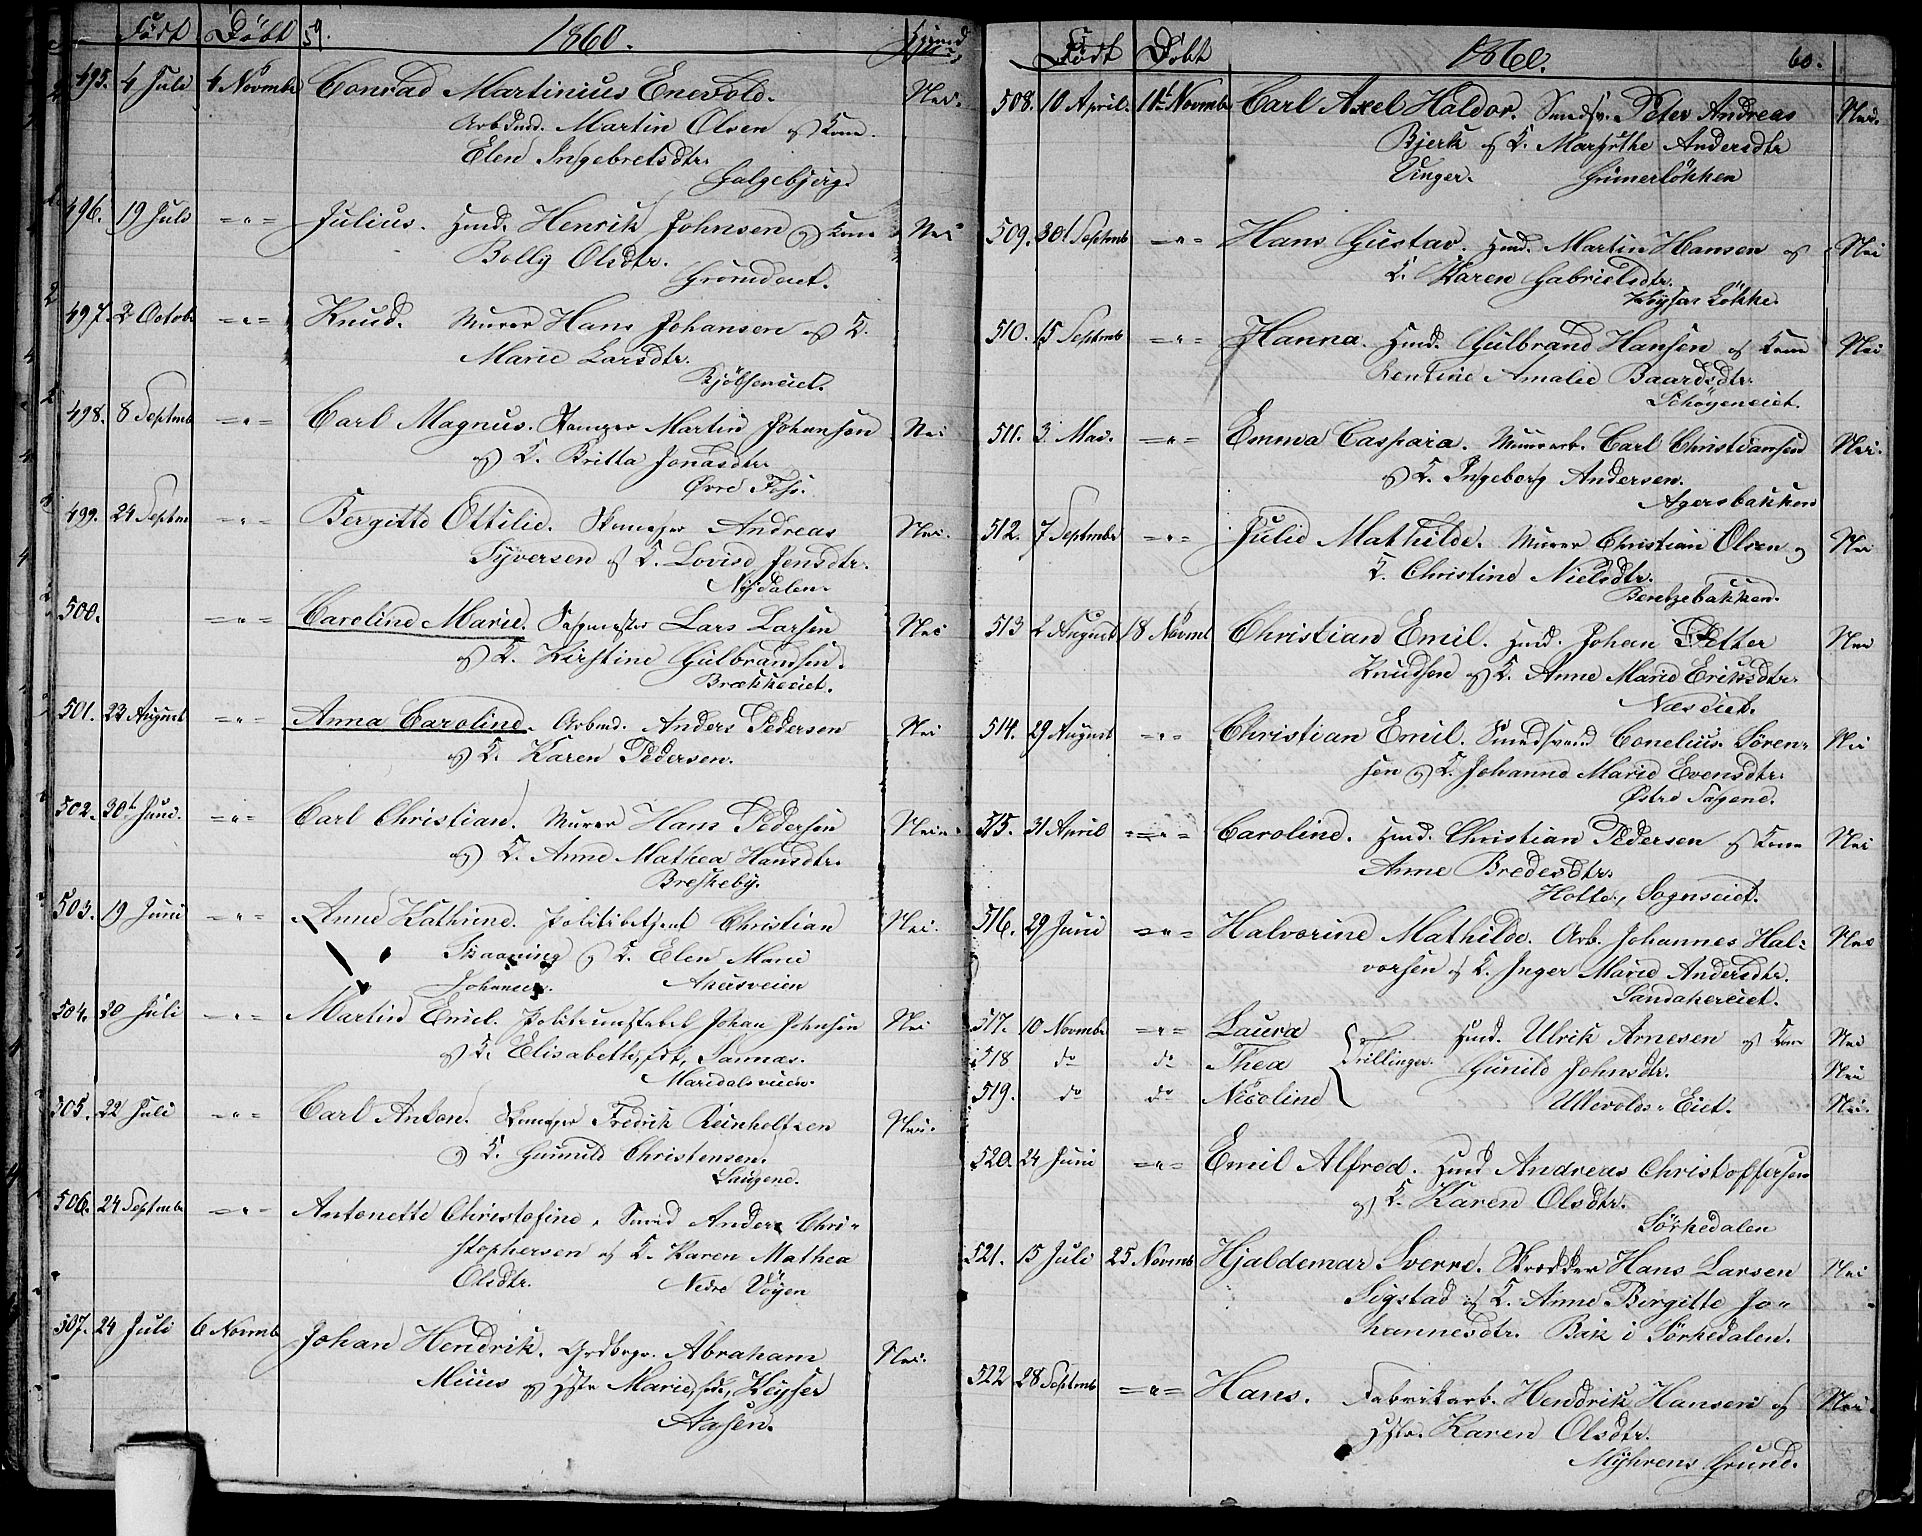 Født Döbt 59. 1860.
495. 4 Juli 4 Novembr Conrad Martinius Enevold. Nei.
Arbmd. Martin Olsen og Kone
Elen Ingebretsdtr.
Galgebjerg.
496. 19 Juli -"- Julius. Husmd. Henrik Johnsen og Kone Nei
Bolly Olsdtr.
Grønvoldt.
497. 2 Octobr -"- Knud. Murer Hans Johansen og K.
Marie Larsdtr.
498. 8 Septmb -"- Carl Magnus. Skomager Martin Johansen Nei
og K. Britta Jonasdtr.
Øvre Foss.
499. 24 Septm -"- Bergitte Ottilie. Skomager Andreas Nei.
Syversen og K. Lovise Jensdtr.
Nydalen.
500. -"- Caroline Marie. Sagmester Lars Larsen Nei
og K. Kirstine Gulbrandsen.
Brekkeeiet.
501. 22 August -"- Anna Caroline. Arbmd. Anders Pedersen Nei
og K. Karen Pedersen.
502. 30t Juni. -"- Carl Christian. Murer Hans Pedersen Nei
og K. Anne Mathea Hansdtr.
Briskeby.
503. 19 Juni -"- Anne Kathrine. Politibetjent Christian Nei.
Skaaning og K. Elen Marie
Johansen. Akersveien
504. 30 Juli -"- Martin Emil. Politikonstabel Johan Johnsen Nei
og K. Elisabeth, fdt. Sannæs.
Maridalsveien.
505. 22 Juli -"- Carl Anton. Skomager Fredrik Reinholtzen Nei.
og K. Gunnild Christensen.
Saugene.
506. 24 Septembr -"- Antonette Christofine. Smed Anders Chri-
stophersen og K. Karen Mathea
Olsdtr. Nedre Vöyen
507. 24 Juli 6 Novmb Johan Hendrik. Grdbrgr. Abraham Nei.
Muus og Hstr Marie, fdt. Keyser
Aasen.
Født Döbt 1860. 60.
508. 10 April. 11t Novmb Carl Axel Haldor. Smedsv. Peter Andreas Nei.
Bjerk og K. Margrethe Andersdtr
Vinger. Grünerlökken
509. 30t Septmb -"- Hans Gustav. Husmd. Martin Hansen og Nei
K. Karen Gabrielsdtr.
Keysers Lökke.
510. 15 Septmb -"- Hanna. Husmd. Gulbrand Hansen og Kone Nei
Kentine Amalie Baardsdtr.
Schøyeneiet.
511. 3. Mai. -"- Emma Caspara. Murarb. Carl Christiansen Nei.
og K. Ingeborg Andersen.
Agersbakken
512. 7 Septmbr -"- Julie Mathilde. Murer Christian Olsen og Nei
K. Christine Nielsdtr.
Bentzebakken.
513 2 August 18 Novmb Christian Emil. Husmd. Johan Petter Nei
Knudsen og K. Anne Marie Eriksdtr.
Næs eiet.
514. 29 August -"- Christian Emil. Smedsvend Conelius Sören- Nei
sen og K. Johanne Marie Evensdtr.
Østre Sagene.
515. 31 April -"- Caroline. Husmd. Christian Pedersen og Kone Nei
Anne Bredesdtr.
Holte, Sognseiet.
516. 29 Juni -"- Halvorine Mathilde. Arb. Johannes Hal- Nei
vorsen og K. Inger Marie Andersdtr.
Sandakereiet.
517. 10 Novmbr -"- Laura Husmd. Ulrik Arnesen og Kone Nei
518 do do Thea Trillinger. Gunild Johnsdtr. Nei
519. do do Nicoline Ullevolds-Eiet. Nei.
520. 24 Juni -"- Emil Alfred. Husmd Andreas Christoffersen
og K. Karen Olsdtr.
Sörkedalen
521. 15 Juli 25 Novmb Hjaldemar Sverre. Skrædder Hans Larsen Nei
Sigstad og K. Anne Birgitte Jo-
hannesdtr. Bak i Sörkedalen.
522 28 Septmb -"- Hans. Fabrikarb. Hendrik Hansen og Nei.
Hstr. Karen Olsdtr.
Myhrens Grund.